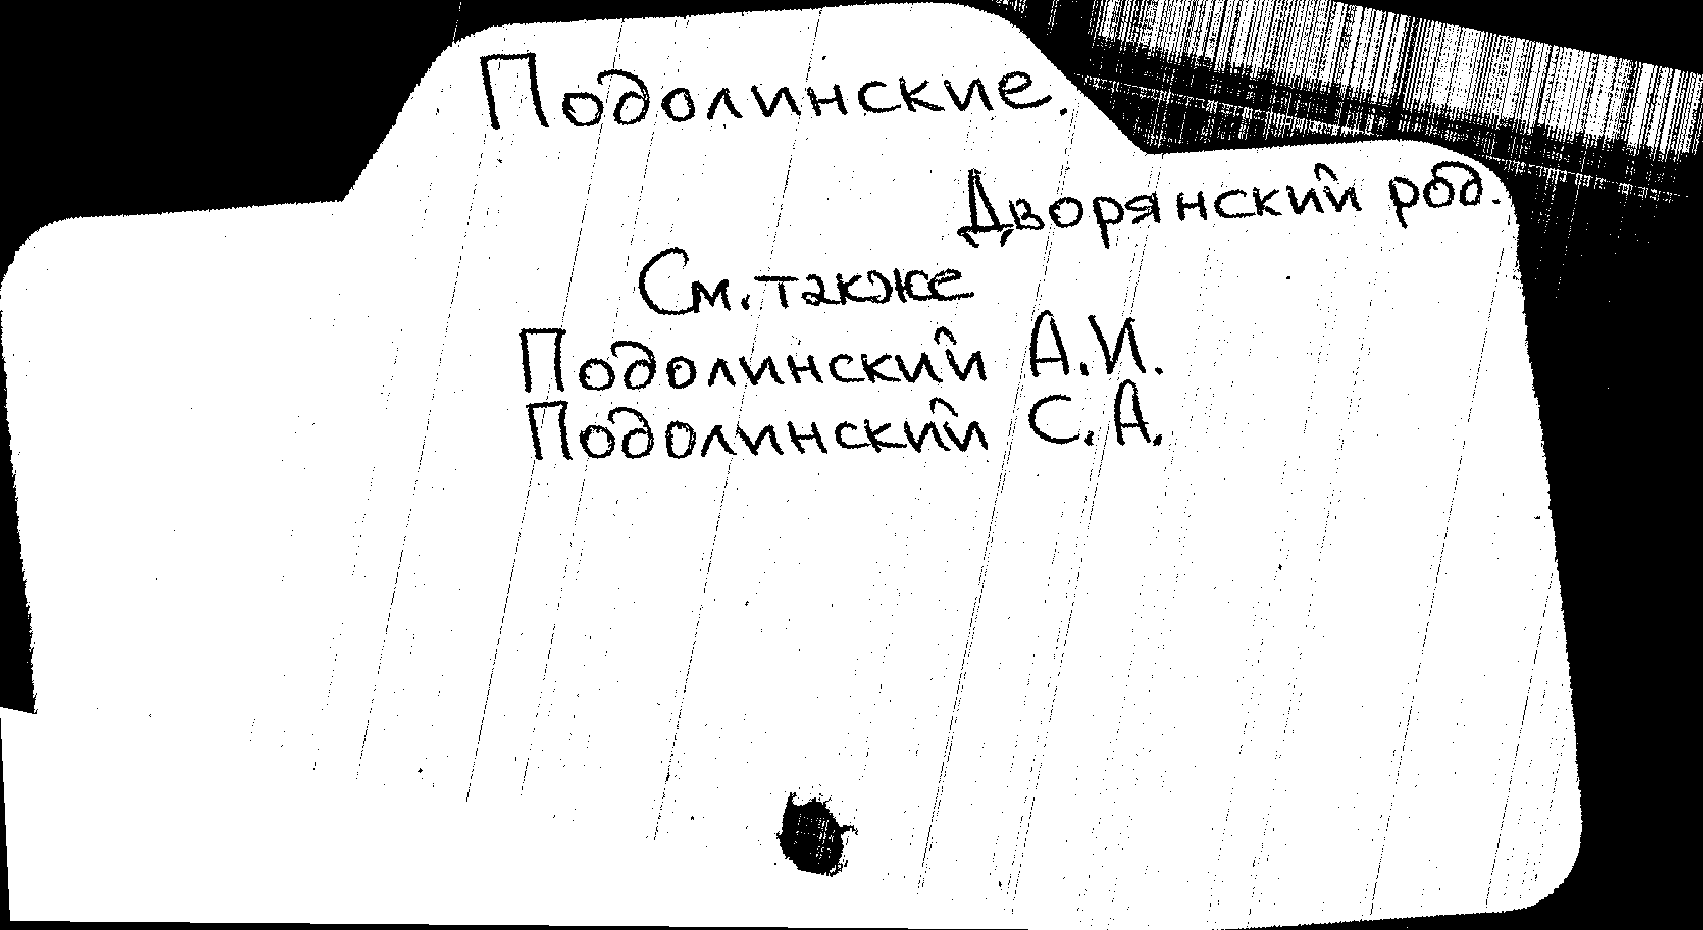 Подолинские.
Дворянский род.
См. также
Подолинский А.И.
Подолинский С.А.